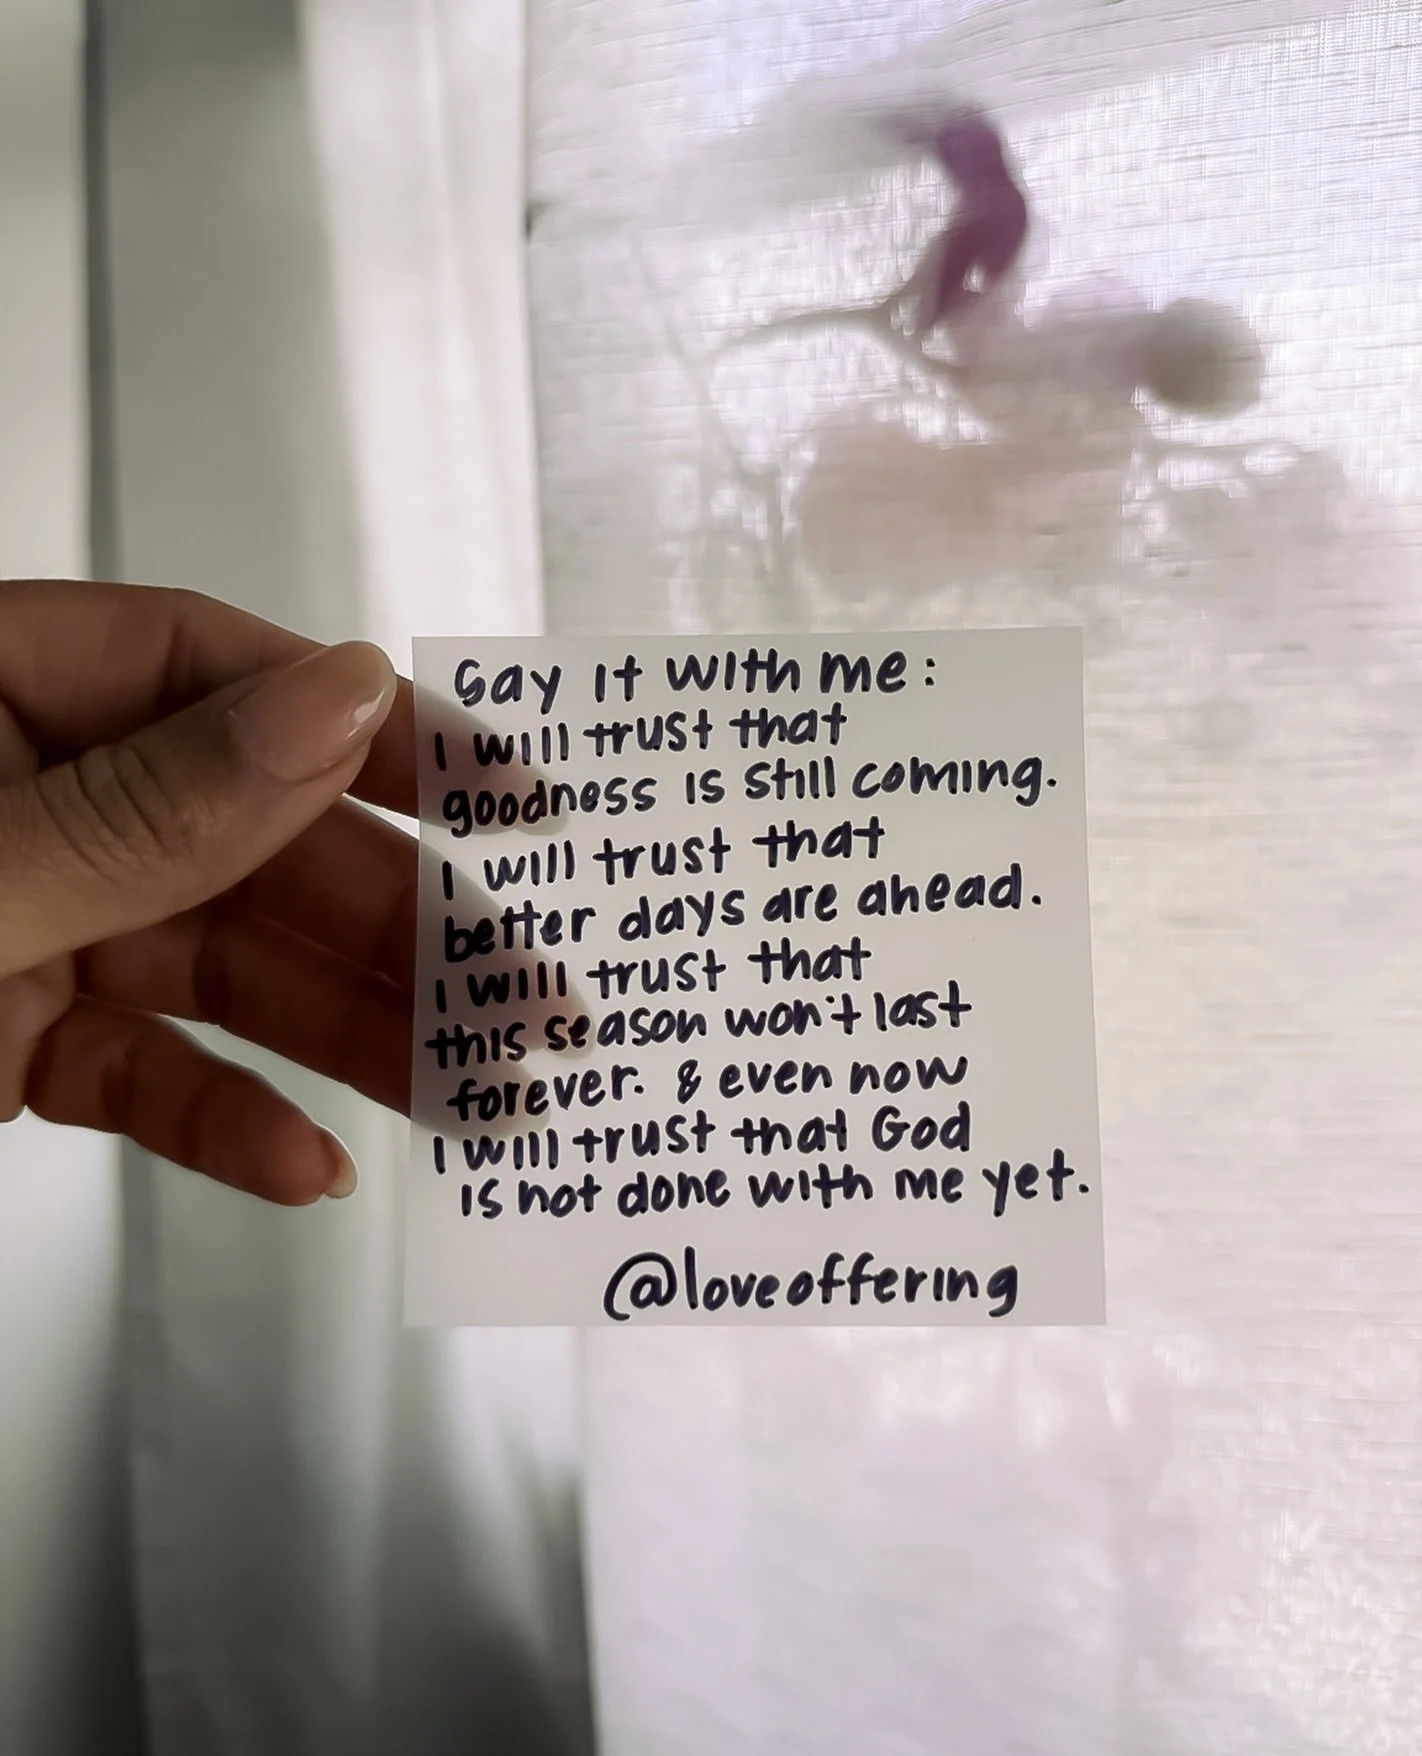 Say it with me:
I will trust that
goodness is still coming.
I will trust that
better days are ahead.
I will trust that
this season won't last
forever. & even now
I will trust that God
is not done with me yet.
@loveoffering